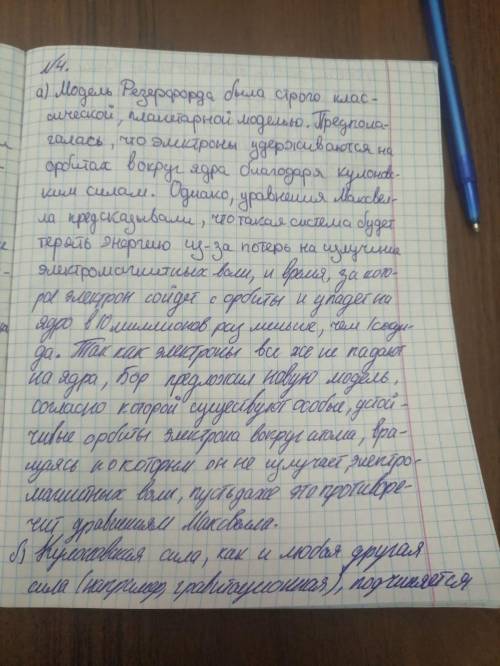 №4.
а) Модель Резерфорда была строго клас-
сической, планетарной моделью. Предпола-
галась, что электроны удерживаются на
орбитах вокруг ядра благодаря кулоновс-
ким силам. Однако, уравнения Максвел-
ла предсказывали, что такая система будет
терять энергию из-за потерь на излучение
электромагнитных волн, и время, за кото-
рое электрон сойдет с орбиты и упадет на
ядро в 10 миллионов раз меньше, чем 1 секун-
да. Так как электроны все же не падают
на ядра, Бор предложил новую модель,
согласно которой существуют особые, устой-
чивые орбиты электрона вокруг атома, вра-
щаясь по которым он не излучает электро-
магнитных волн, пусть даже это противоре-
чит уравнениям Максвелла.
б) Кулоновская сила, как и любая другая
сила (например, гравитационная), подчиняется